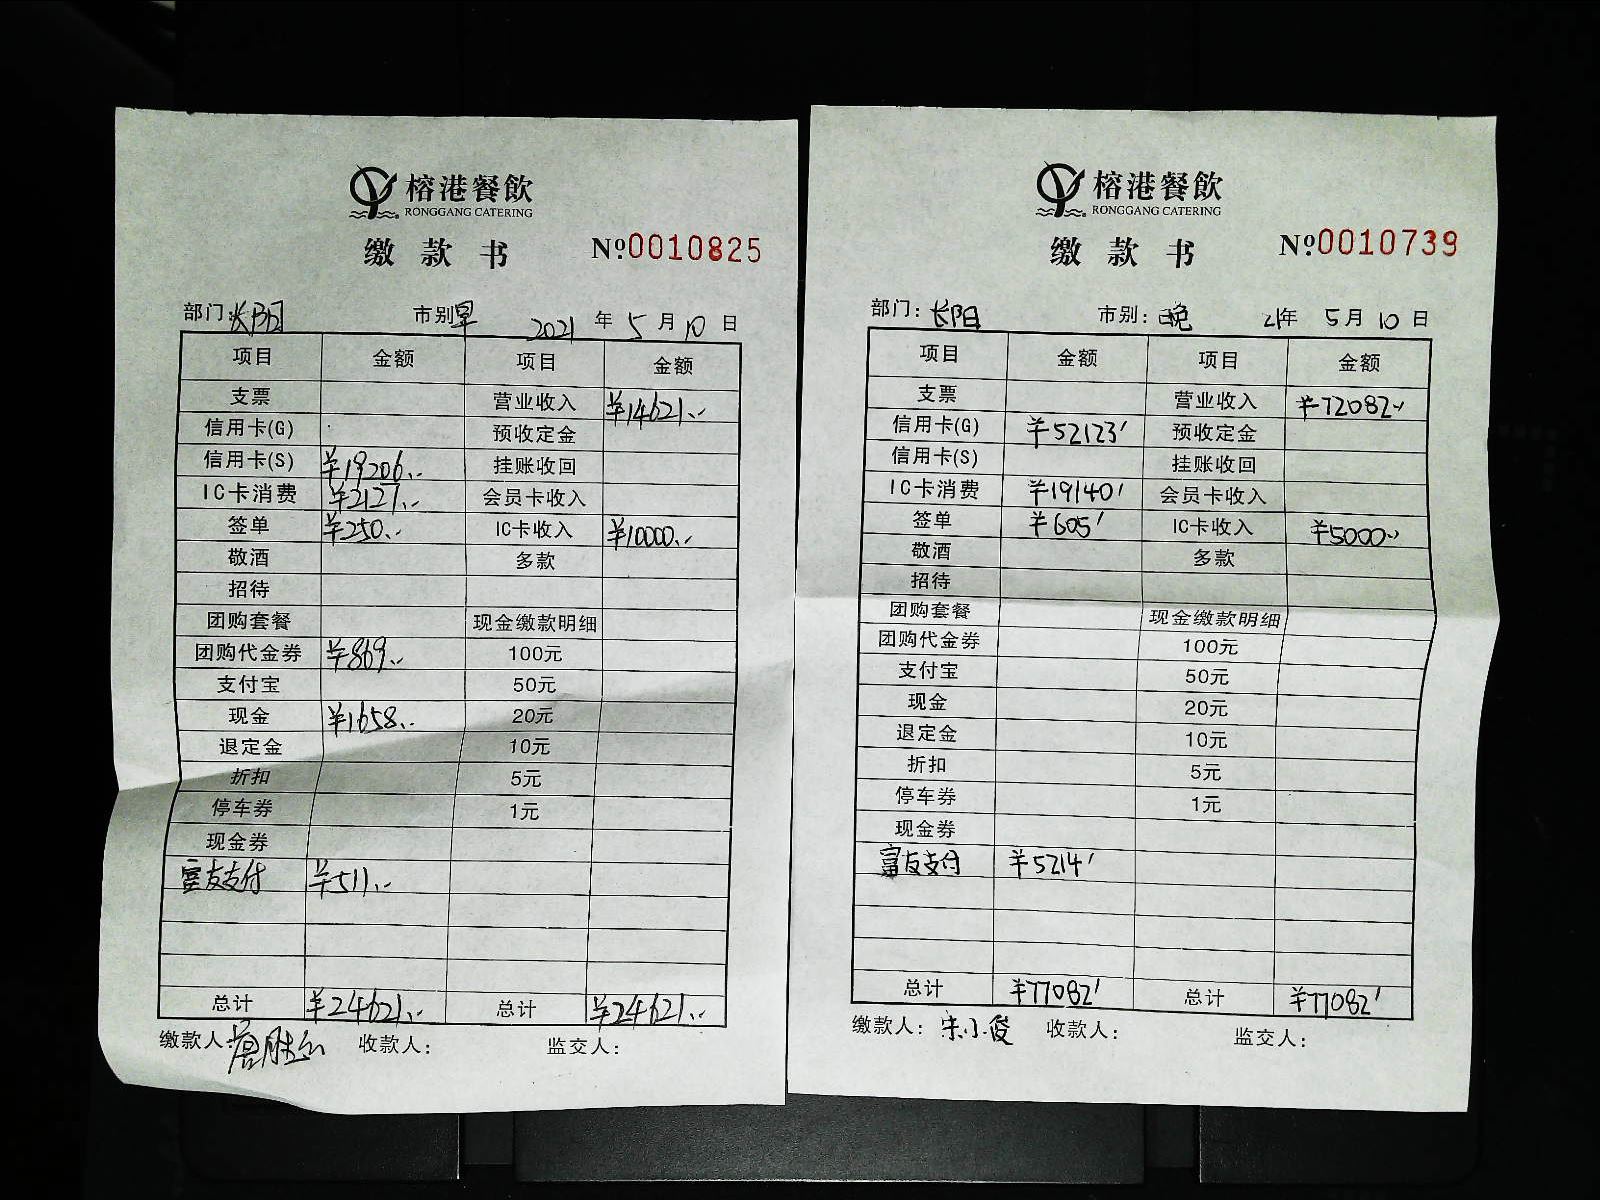 榕港餐飲
RONGGANG CATERING
缴款书 №0010825
部门:长阳 市别早 2021年5月10日
项目 金额 项目 金额
支票 营业收入 ¥14621.-
信用卡(G) 预收定金
信用卡(S) ¥19206.- 挂账收回
IC卡消费 ¥2127.- 会员卡收入
签单 ¥250.- IC卡收入 ¥10000.-
敬酒 多款
招待
团购套餐 现金缴款明细
团购代金券 ¥869.- 100元
支付宝 50元
现金 ¥1658.- 20元
退定金 10元
折扣 5元
停车券 1元
现金券
富友支付 ¥511.-
总计 ¥24621.- 总计 ¥24621.-
缴款人: 收款人: 监交人:
榕港餐飲
RONGGANG CATERING
缴款书 №0010739
部门:长阳 市别:晚 21年5月10日
项目 金额 项目 金额
支票 营业收入 ¥72082.-
信用卡(G) ¥52123' 预收定金
信用卡(S) 挂账收回
IC卡消费 ¥19140' 会员卡收入
签单 ¥605' IC卡收入 ¥5000.-
敬酒 多款
招待
团购套餐 现金缴款明细
团购代金券 100元
支付宝 50元
现金 20元
退定金 10元
折扣 5元
停车券 1元
现金券
富友支付 ¥5214'
总计 ¥77082' 总计 ¥77082'
缴款人:宋小俊 收款人: 监交人: